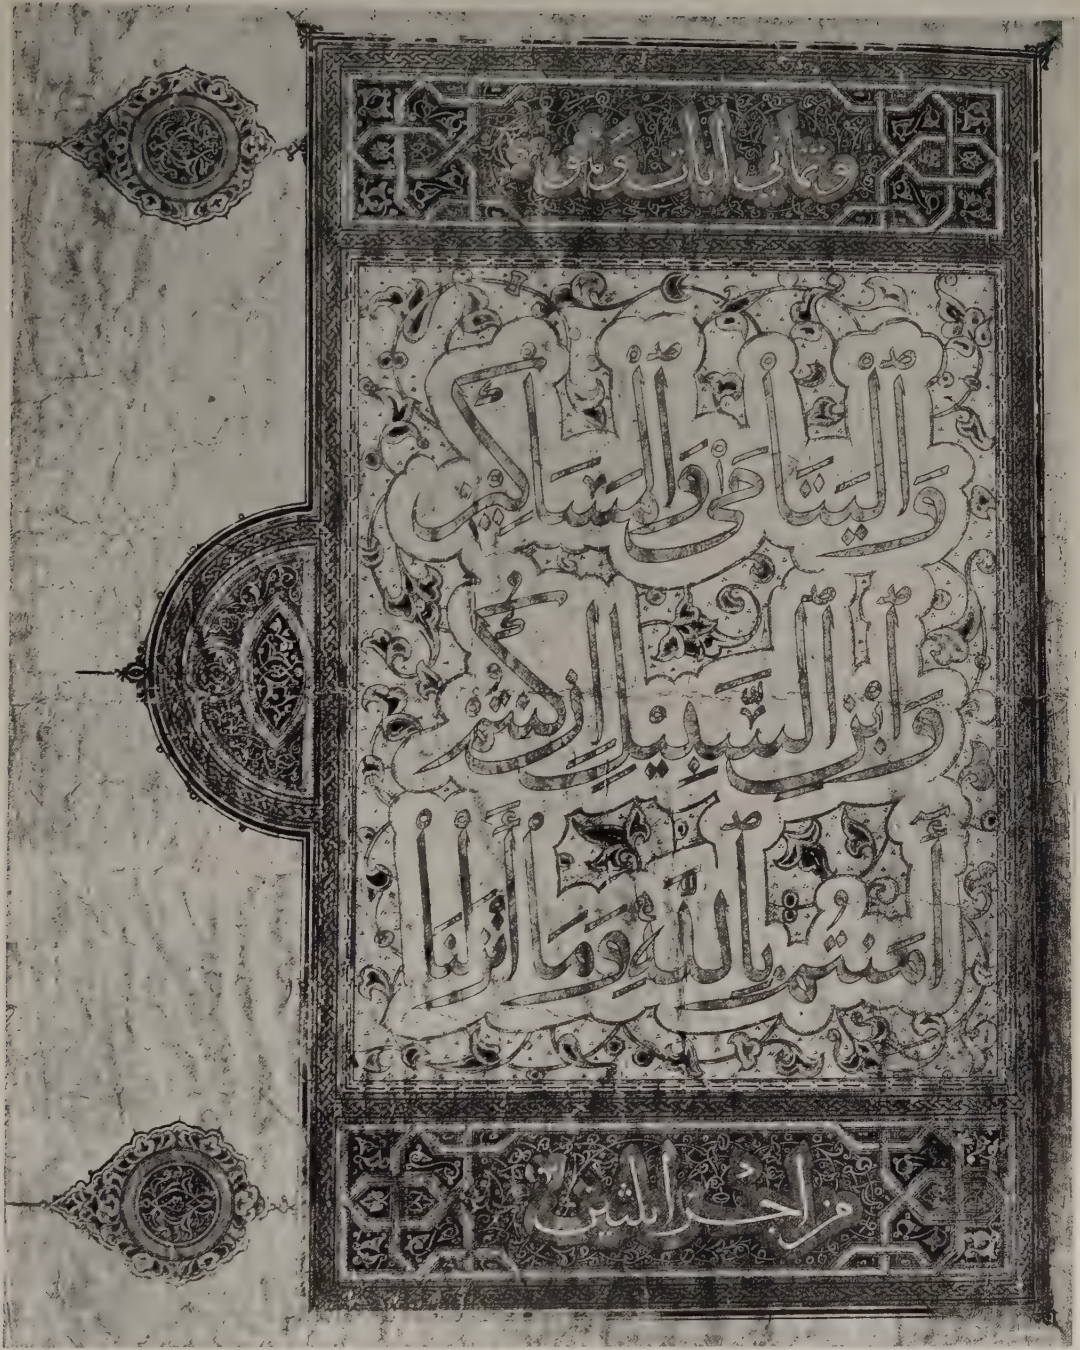 وَالْيَتَامَىٰ وَالْمَسَاكِينِ
وَابْنِ السَّبِيلِ إِنْ كُنْتُمْ
آمَنْتُمْ بِاللَّهِ وَمَا أَنْزَلْنَا
من اجزا ثلثين